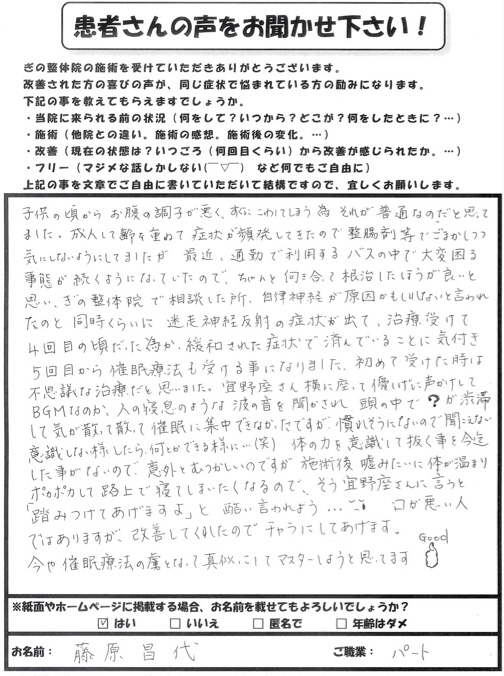 患者さんの声をお聞かせ下さい！
ぎの整体院の施術を受けていただきありがとうございます。
改善された方の喜びの声が、同じ症状で悩まれている方の励みになります。
下記の事を教えてもらえますでしょうか。
・当院に来られる前の状況（何をして？いつから？どこが？何をしたときに？…）
・施術（他院との違い。施術の感想。施術後の変化。…）
・改善（現在の状態は？いつごろ（何回目くらい）から改善が感じられたか。…）
・フリー（マジメな話しかしない(￣▽￣)　など何でもご自由に）
上記の事を文章でご自由に書いていただいて結構ですので、宜しくお願いします。
子供の頃から お腹の調子が悪く、すぐにこわしてしまう為 それが普通なのだと思って
ました。成人して齢を重ねて 症状が頻発してきたので 整腸剤等でごまかしつつ
気にしないようにしてましたが 最近、通勤で利用する バスの中で大変困る
事態が続くようになっていたので、ちゃんと向き合って根治したほうが良いと
思い、ぎの整体院で相談した所、自律神経が原因かもしれないと言われ
たのと 同時くらいに 迷走神経反射の症状が出て、治療受けて
4回目の頃だった為か、緩和された症状で済んでいることに気付き
5回目から催眠療法も受ける事になりました。初めて受けた時は
不思議な治療だと思いました。宜野座さん横に座って儚げに声かけして
BGMなのか、人の寝息のような 波の音を聞かされ、頭の中で ？が渋滞
して気が散って散って催眠に集中できなかったですが、慣れそうにないので聞こえない
意識しない様したら何とかできる様に…(笑) 体の力を意識して抜く事を今迄
した事がないので、意外とむつかしいのですが 施術後 嘘みたいに体が温まり
ポカポカして路上で寝てしまいたくなるので、そう宜野座さんに言うと
「踏みつけてあげますよ」と 酷い言われよう…　口が悪い人
ではありますが、改善してくれたのでチャラにしてあげます。
今や催眠療法の虜となって真似っこしてマスターしようと思ってます
Good
※紙面やホームページに掲載する場合、お名前を載せてもよろしいでしょうか？
☑ はい　□ いいえ　□ 匿名で　□ 年齢はダメ
お名前： 藤原昌代　ご職業： パート